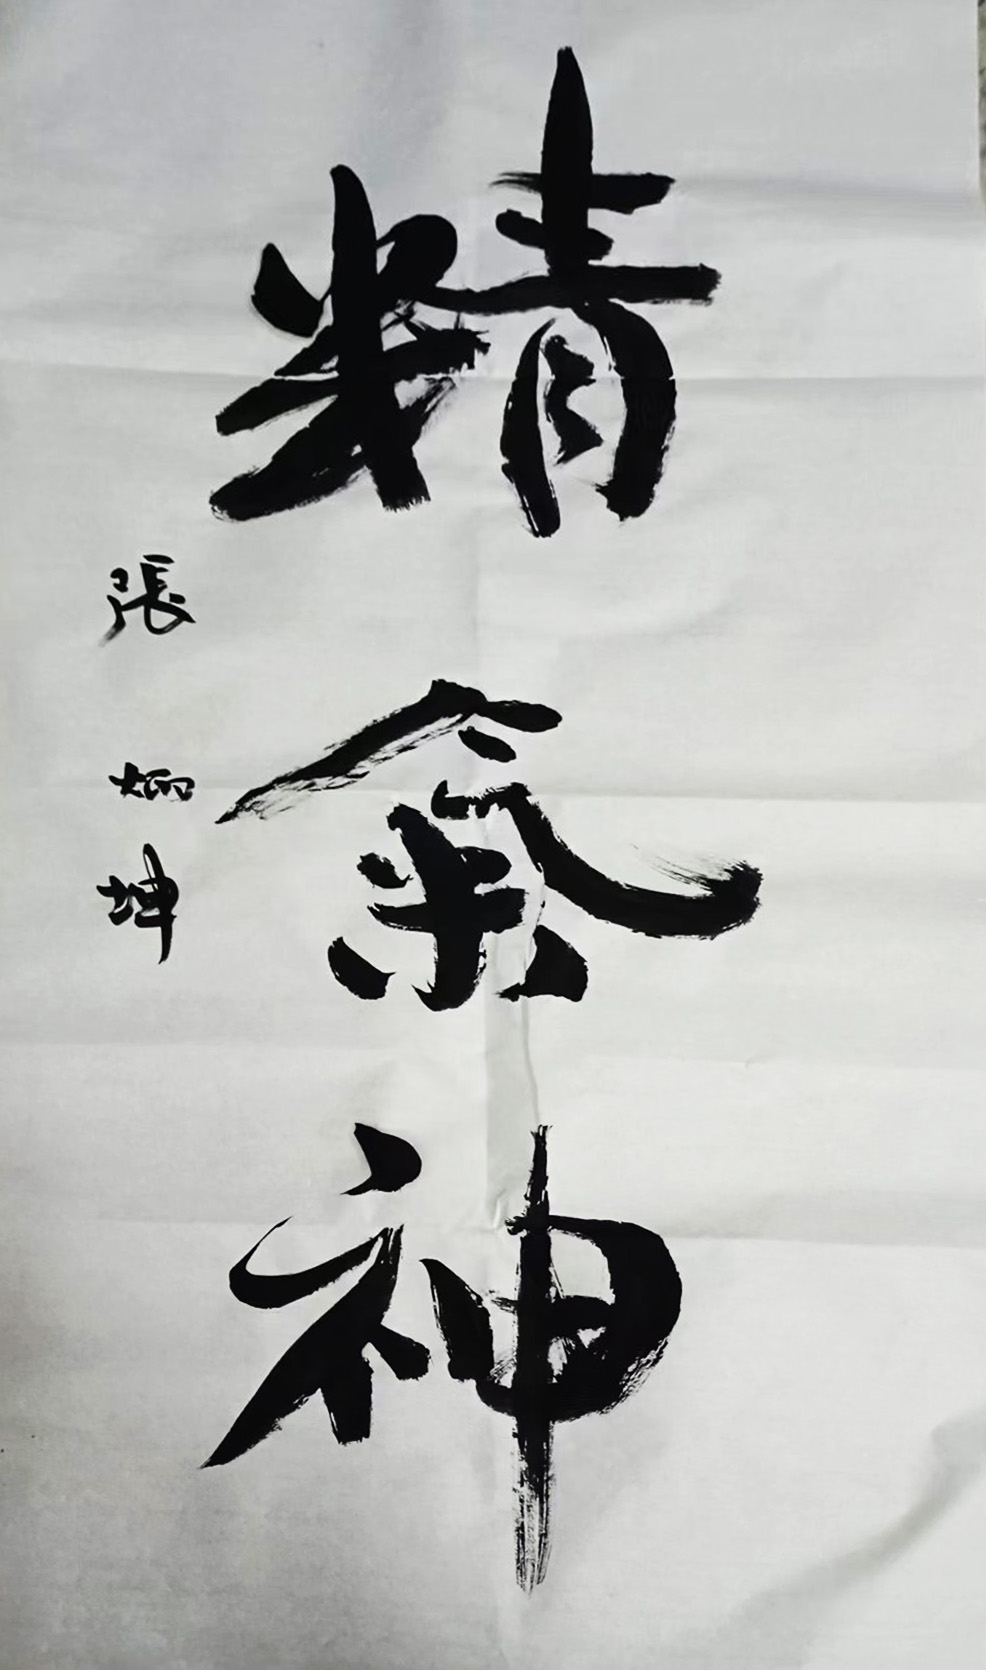 精氣神
張炳坤